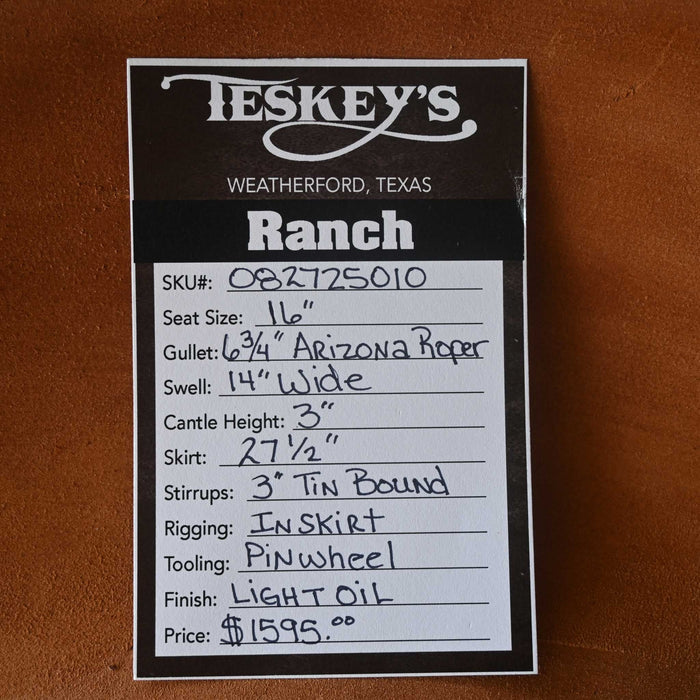 TESKEY'S
WEATHERFORD, TEXAS
Ranch
SKU#: 082725010
Seat Size: 16"
Gullet: 6 3/4" ARIZONA Roper
Swell: 14" Wide
Cantle Height: 3"
Skirt: 27 1/2"
Stirrups: 3" TIN BOUND
Rigging: INSKIRT
Tooling: PINwheel
Finish: LIGHT OIL
Price: $1595.00